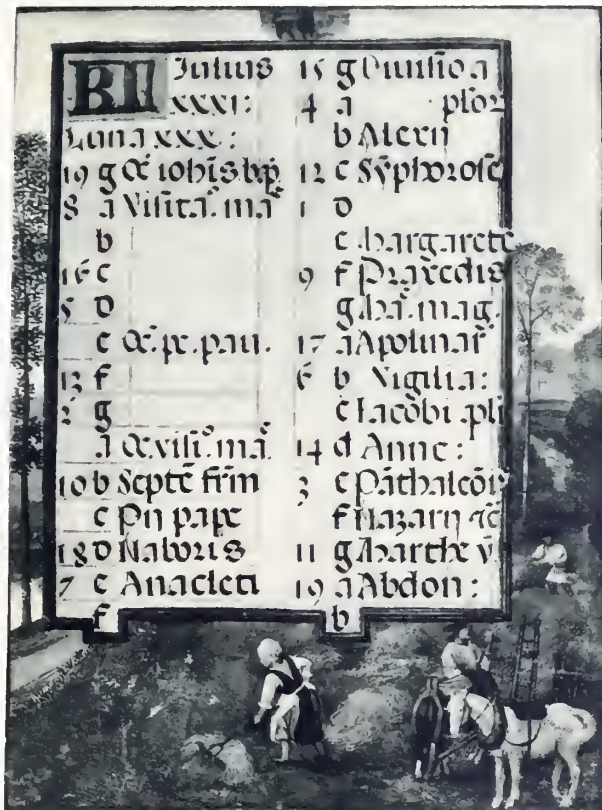 Kl Iulius
xxxi:
Luna xxx:
19 g Oc̄ ioħis bap̄.
8 a Visitaᵒ. maᵉ
b
16 c
5 d
e Oc̄. pe. pau.
13 f
2 g
a Oc̄. visiᵒ. maᵉ.
10 b Septē frm̄
c Pii pape
18 d Naboris
7 e Anacleti
f
15 g Diuisio a
4 a plor
b Alexii
12 c Sȳphorose
1 d
e Margarete
9 f Praxedis
g Mаᵉ. mag.
17 a Apolinar̄
6 b Vigilia:
c Iacobi apli
14 d Anne:
3 e Pāthaleōn
f Nazarii ⁊c
11 g Marthe v̄
19 a Abdon:
b